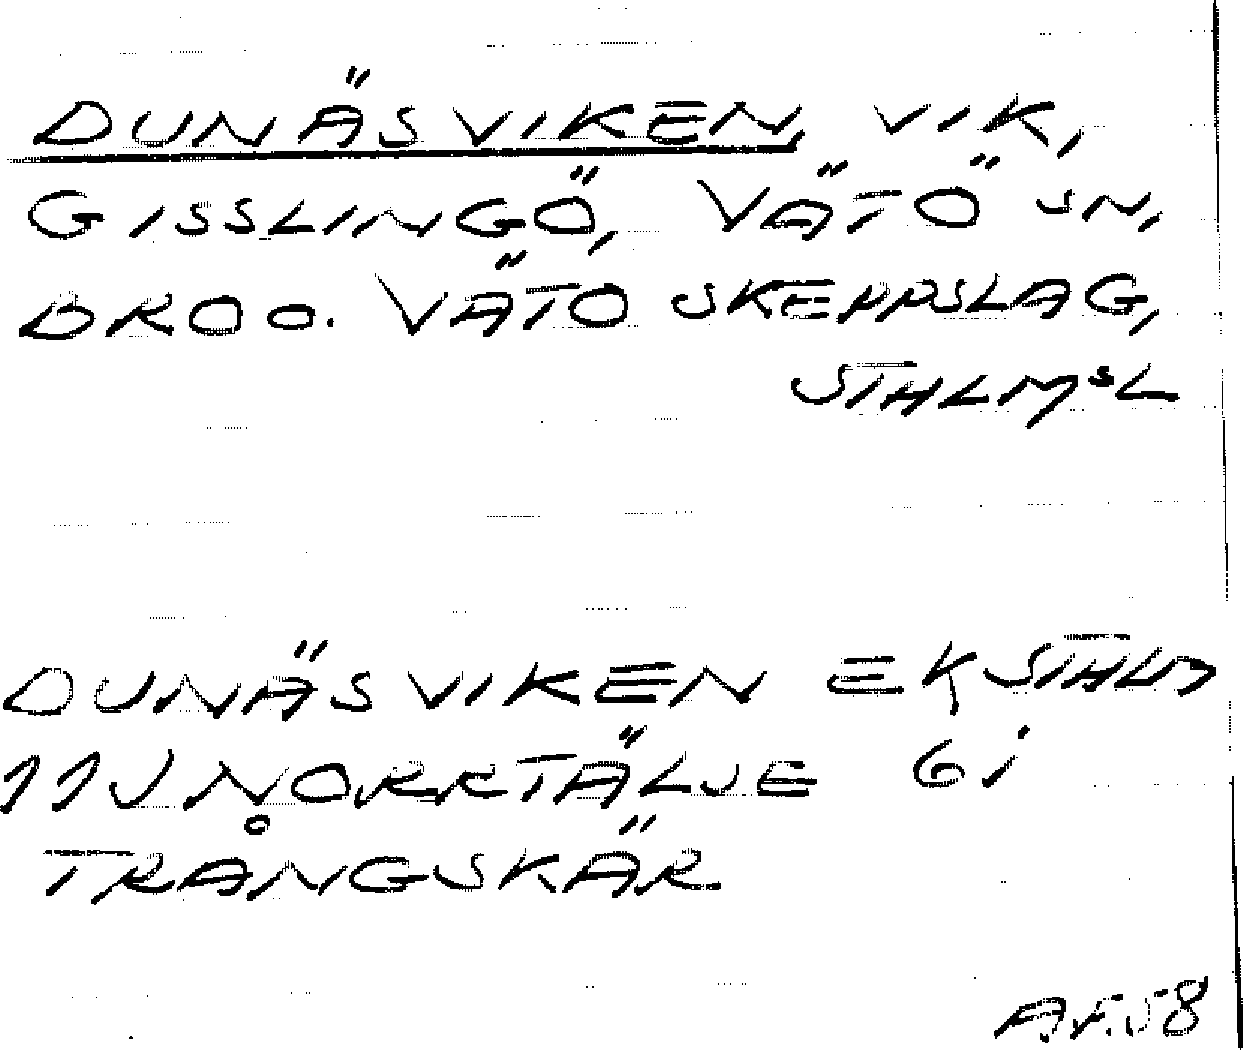 DUNÄSVIKEN, VIK,
GISSLINGÖ, VÄTÖ SN,
BRO O. VÄTÖ SKEPPSLAG,
STHLMSL
DUNÄSVIKEN EKSTHLM
11J NORRTÄLJE 6i
TRÅNGSKÄR
A.F.58